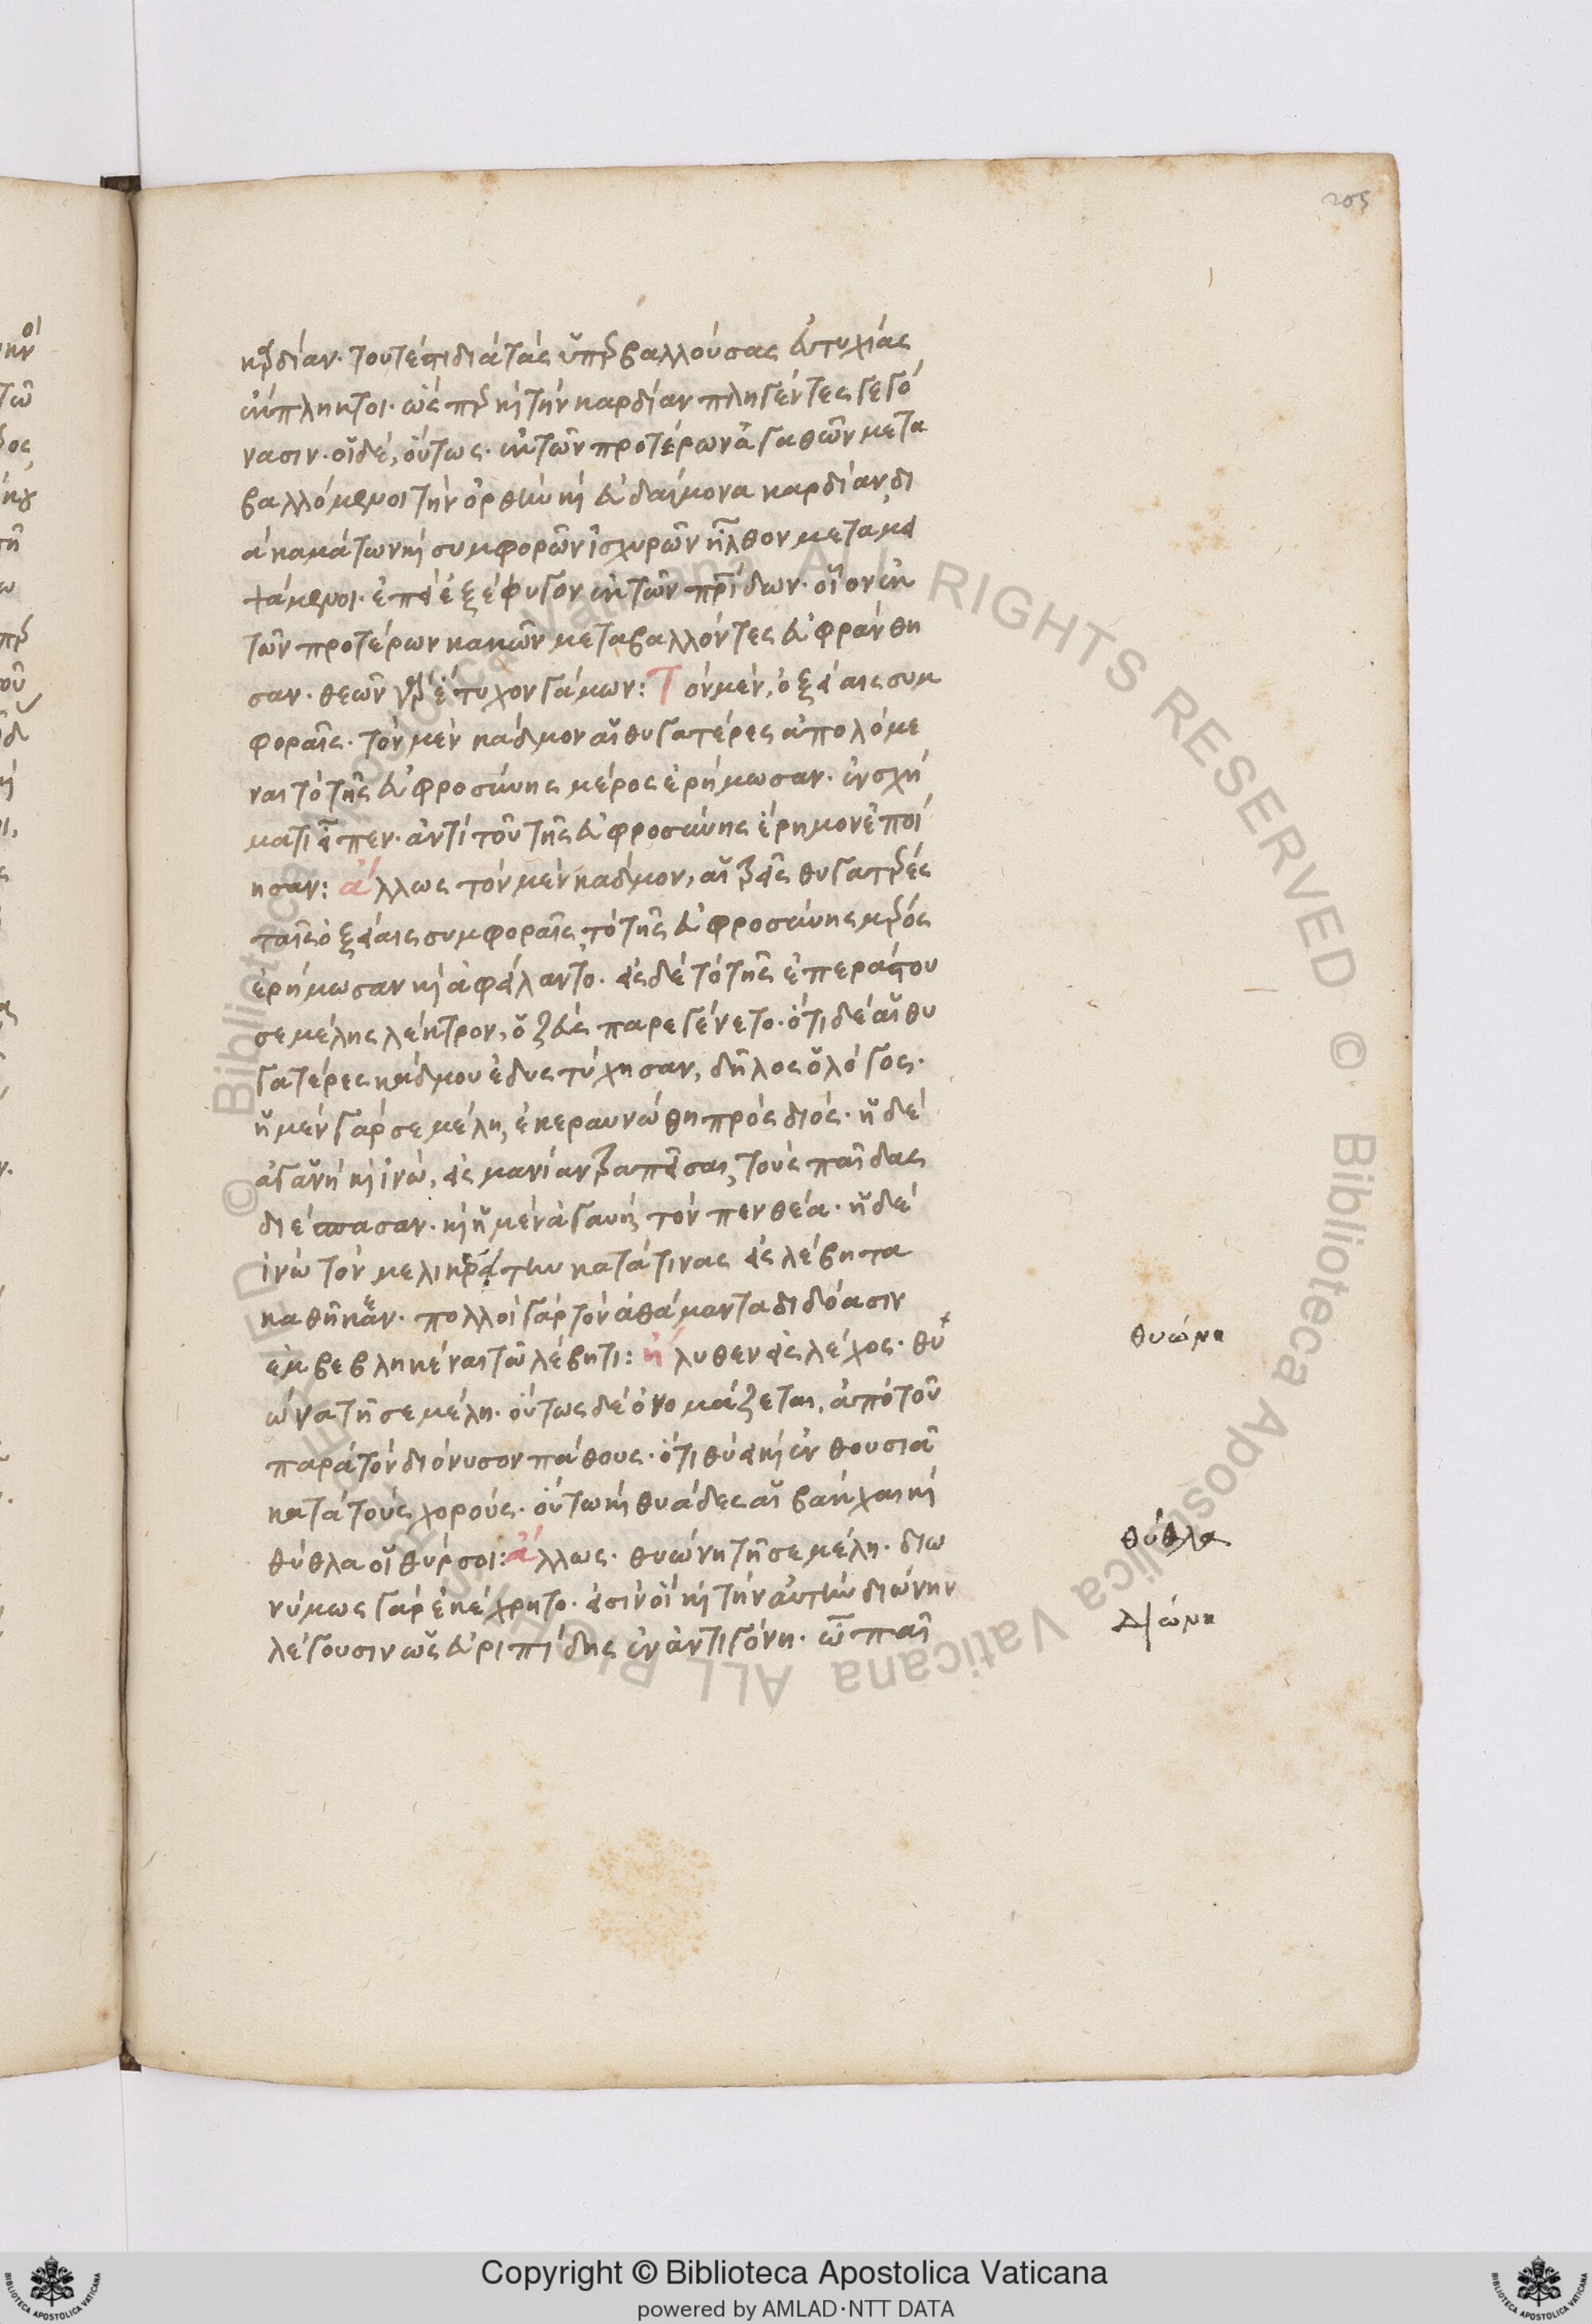 205
καρδίαν· τουτέστι διὰ τὰς ὑπερβαλλούσας εὐτυχίας
ἔκπληκτοι· ὥσπερ καὶ τὴν καρδίαν πληγέντες γεγό
νασιν· οἱ δέ, οὕτως· ἐκ τῶν προτέρων ἀγαθῶν μετα
βαλλόμενοι τὴν ὀρθὴν καὶ εὐδαίμονα καρδίαν, δι
ὰ καμάτων καὶ συμφορῶν ἰσχυρῶν ἦλθον μεταμει
ψάμενοι· ἐπεὶ ἐξέφυγον ἐκ τῶν πατρίδων· οἷον ἐκ
τῶν προτέρων κακῶν μεταβαλλόντες εὐφράνθη
σαν· θεῶν γὰρ ἔτυχον γάμων: Τὸν μὲν, ὀξείαις συμ
φοραῖς· τὸν μὲν κάδμον αἱ θυγατέρες ἀπολόμε
ναι τὸ τῆς εὐφροσύνης μέρος ἐρήμωσαν· ἐν σχή
ματι εἶπεν· ἀντὶ τοῦ τῆς εὐφροσύνης ἔρημον ἐποί
ησαν: ἄλλως τὸν μὲν κάδμον, αἱ τρεῖς θυγατέρες
ταῖς ὀξείαις συμφοραῖς, τὸ τῆς εὐφροσύνης μέρος
ἐρήμωσαν καὶ ἀφείλαντο· εἰς δὲ τὸ τῆς ἐπεράστου
σεμέλης λέκτρον, ὁ ζεὺς παρεγένετο· ὅτι δὲ αἱ θυ
γατέρες κάδμου ἐδυστύχησαν, δῆλος ὁ λόγος·
ἡ μὲν γὰρ σεμέλη, ἐκεραυνώθη πρὸς διός· ἡ δὲ
ἀγαυὴ καὶ ἰνὼ, εἰς μανίαν τραπεῖσαι, τοὺς παῖδας
διέσπασαν· καὶ ἡ μὲν ἀγαυὴ, τὸν πενθέα· ἡ δὲ
ἰνὼ τὸν μελικέρτην κατά τινας εἰς λέβητα
καθῆκεν· πολλοὶ γὰρ τὸν ἀθάμαντα διδόασιν
ἐμβεβληκέναι τῶ λέβητι: ἤλυθεν εἰς λέχος· θυ
ώνα τῆ σεμέλη· οὕτως δὲ ὀνομάζεται, ἀπὸ τοῦ
παρὰ τὸν διόνυσον πάθους· ὅτι θύει καὶ ἐνθουσιᾶ
κατὰ τοὺς χορούς· οὕτω καὶ θυάδες αἱ βάκχαι καὶ
θύθλα οἱ θύρσοι: ἄλλως· θυώνη τῆ σεμέλη· διω
νύμως γὰρ ἐκέχρητο· εἰσὶν οἳ καὶ τὴν αὐτὴν διώνην
λέγουσιν ὡς εὐριπίδης ἐν ἀντιγόνη· ὦ παῖ
θυώνα
θύθλα
Διώνη
Copyright © Biblioteca Apostolica Vaticana
powered by AMLAD·NTT DATA